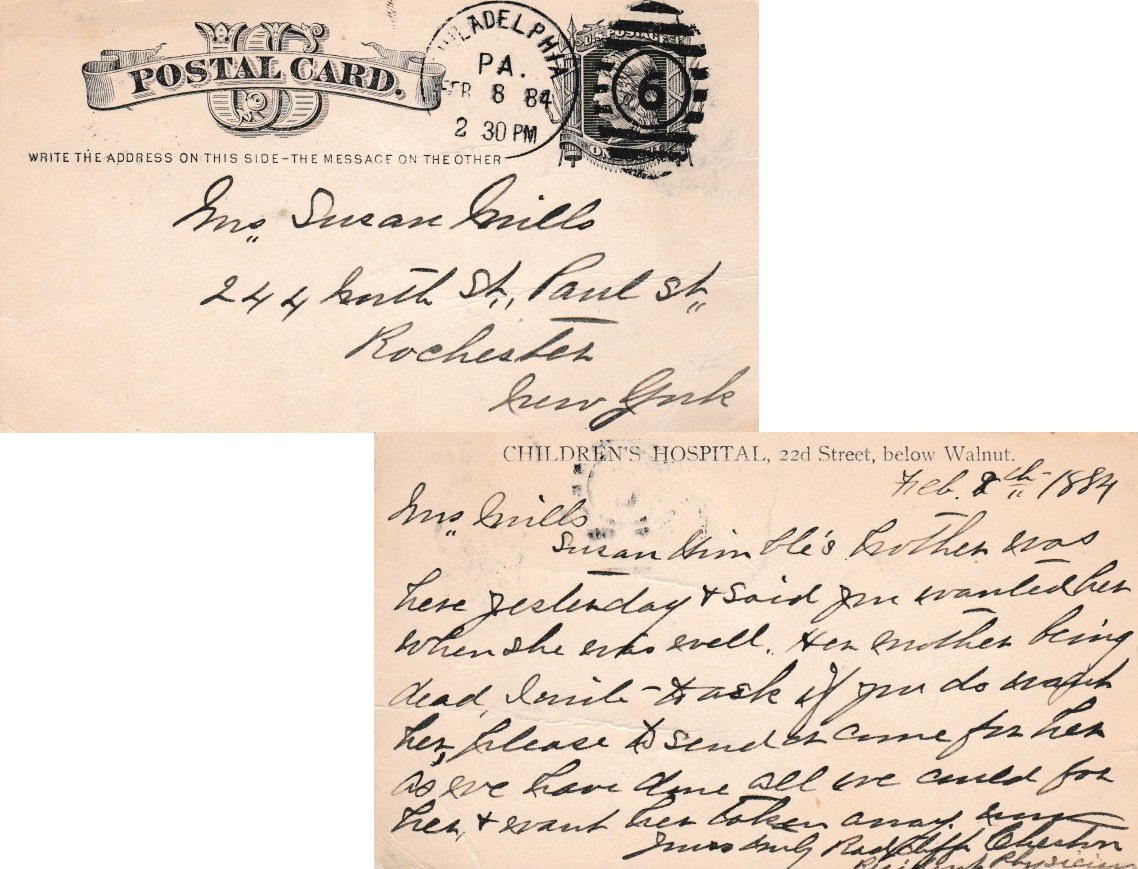 POSTAL CARD.
PHILADELPHIA
PA.
FEB 8 84
2 30 PM
6
WRITE THE ADDRESS ON THIS SIDE - THE MESSAGE ON THE OTHER
Mrs. Susan Mills
244 North St. Paul St.
Rochester
New York
CHILDREN'S HOSPITAL, 22d Street, below Walnut.
Feb. 8th 1884
Mrs. Mills
Susan Himble's brother was
here yesterday & said you wanted her
when she was well. Her mother being
dead, I write to ask if you do want
her, please to send or come for her
as we have done all we could for
her, & want her taken away.
Yours truly Radcliffe Cheston
Resident Physician